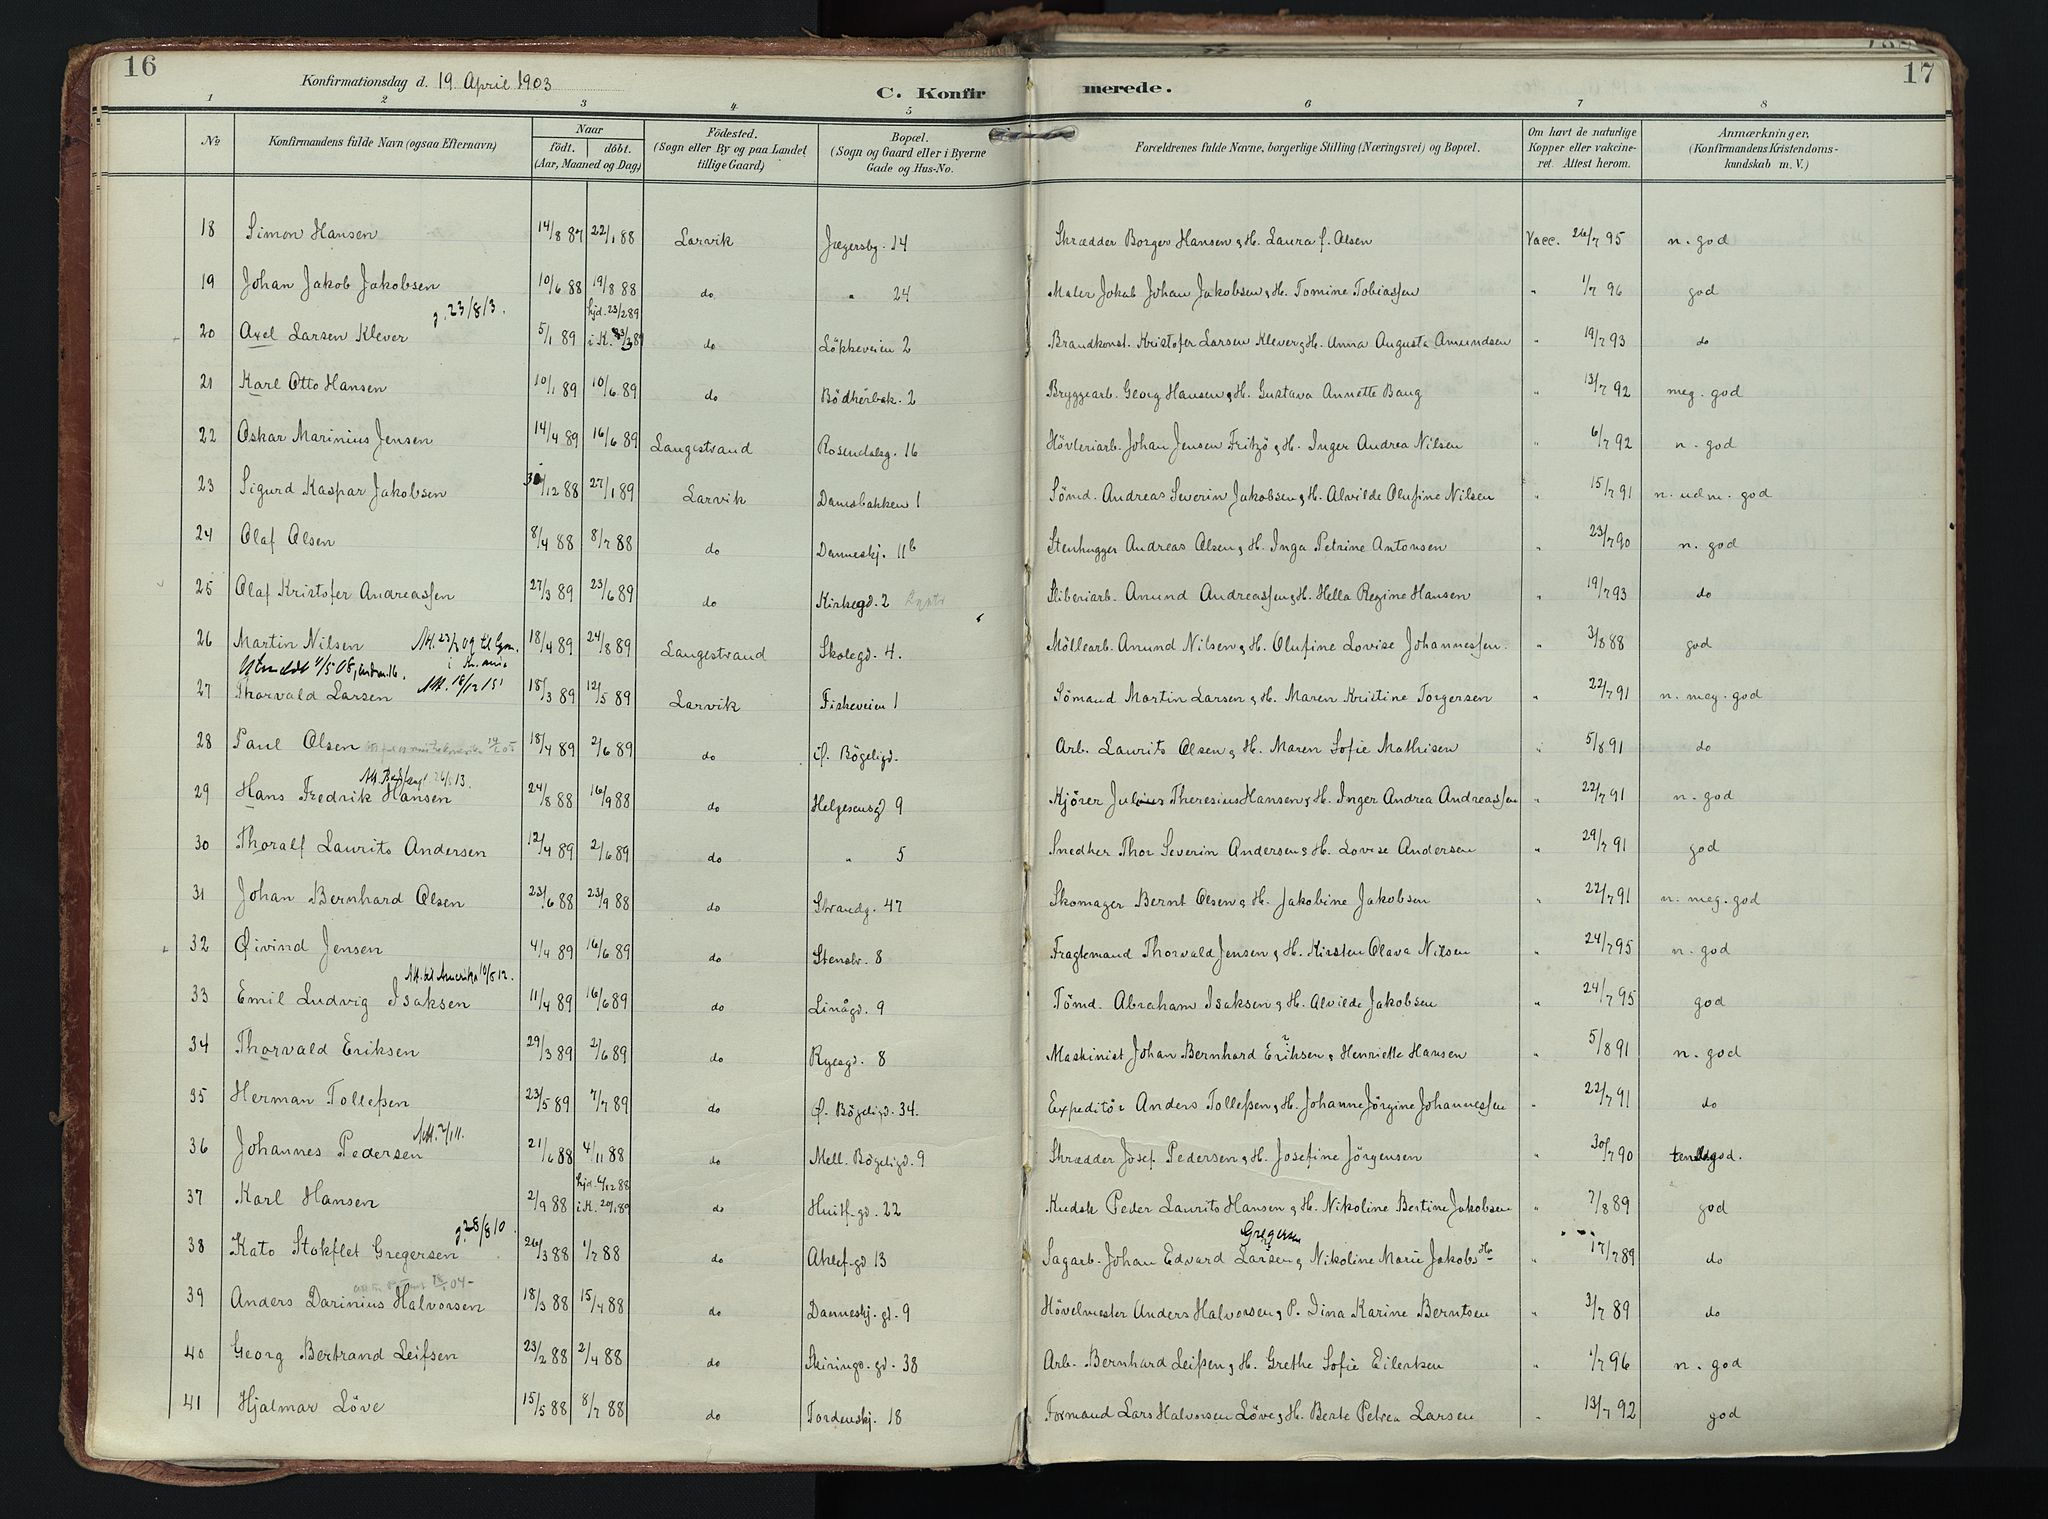 16
Konfirmationsdag d. 19. April 1903
C. Konfirmerede.
17
1 2 3 4. 5 6 7 8
No
Konfirmandens fulde Navn (ogsaa Efternavn)
Naar
födt. döbt.
(Aar, Maaned og Dag)
Födested.
(Sogn eller By og paa Landet
tillige Gaard)
Bopæl.
(Sogn og Gaard eller i Byerne
Gade og Hus-No.
Forældrenes fulde Navne, borgerlige Stilling (Næringsvei) og Bopæl.
Om havt de naturlige
Kopper eller vakcine-
ret. Attest herom.
Anmærkninger,
(Konfirmandens Kristendoms-
kundskab m. V.)
18 Simon Hansen 14/8 87 22/1 88 Larvik Jægersbg. 14 Skrædder Borger Hansen & H. Laura f. Olsen Vacc. 26/7 95 n. god
19 Johan Jakob Jakobsen 10/6 88 19/8 88 do " 24 Maler Jakob Johan Jakobsen & H. Tomine Tobiassen " 1/7 96 god
g. 23/8 13. hjd. 23/2 89
20 Axel Larsen Klever 5/1 89 i K. 23/3 89 do Lökkeveien 2 Brandkonst. Kristofer Larsen Klever & H. Anna Augusta Amundsen " 19/7 93 do
21 Karl Otto Hansen 10/1 89 10/6 89 do Bödkerbak. 2 Bryggearb. Georg Hansen & H. Gustava Annette Baug " 13/7 92 meg. god
22 Oskar Marinius Jensen 14/4 89 16/6 89 Langestrand Rosendalsg. 16 Hövleriarb. Johan Jensen Fritzö & H. Inger Andrea Nilsen " 6/7 92 n. god
23 Sigurd Kaspar Jakobsen 30/12 88 27/1 89 Larvik Damsbakken 1 Sömd. Andreas Severin Jakobsen & H. Alvilde Olufine Nilsen " 15/7 91 n. udm. god
24 Olaf Olsen 8/4 88 8/7 88 do Danneskj. 11b Stenhugger Andreas Olsen & H. Inga Petrine Antonsen " 23/7 90 n. god
25 Olaf Kristofer Andreassen 27/3 89 23/6 89 do Kirkegd. 2 Sliberiarb. Anund Andreassen & H. Hella Regine Hansen " 19/7 93 do
26 Martin Nilsen 18/4 89 24/8 89 Langestrand Skolegd. 4. Möllearb. Anund Nilsen & H. Olufine Lovise Johannessen. " 3/8 88 god
27 Thorvald Larsen 18/3 89 12/5 89 Larvik Fiskeveien 1 Sömand Martin Larsen & H. Maren Kristine Torgersen " 22/7 91 n. meg. god
28 Paul Olsen 18/4 89 2/6 89 do Ö. Bögeligd. Arb. Laurits Olsen & H. Maren Sofie Mathisen " 5/8 91 do
29 Hans Fredrik Hansen 24/8 88 16/9 88 do Helgesensgd 9 Kjörer Julius Theresius Hansen & H. Inger Andrea Andreassen " 22/7 91 n. god
30 Thoralf Laurits Andersen 12/4 89 2/6 89 do " 5 Snedker Thor Severin Andersen & H. Lovise Andersen " 29/7 91 god
31 Johan Bernhard Olsen 23/6 88 23/9 88 do Strandg. 47 Skomager Bernt Olsen & H. Jakobine Jakobsen " 22/7 91 n. meg. god
32 Øivind Jensen 4/4 89 16/6 89 do Stenslv. 8 Fragtemand Thorvald Jensen & H. Kirsten Olava Nilsen " 24/7 95 n. god
Att. til Amerika 10/5 12.
33 Emil Ludvig Isaksen 11/4 89 16/6 89 do Linågd. 9 Tömd. Abraham Isaksen & H. Alvilde Jakobsen " 24/7 95 god
34 Thorvald Eriksen 29/3 89 2/6 89 do Ryesgd. 8 Maskinist Johan Bernhard Eriksen & Henriette Hansen " 5/8 91 n. god
35 Herman Tollefsen 23/5 89 7/7 89 do Ö. Bögeligd. 34. Expeditör Anders Tollefsen & H. Johanne Jörgine Johannessen " 22/7 91 do
Att. 2/1 11.
36 Johannes Pedersen 21/6 88 4/11 88 do Mell. Bögeligd. 9 Skrædder Josef Pedersen & H. Josefine Jörgensen " 30/7 90 god.
37 Karl Hansen 2/9 88 hjd. 4/12 88 i K. 20/1 89 do Huitf. gd. 22 Kudsk Peder Laurits Hansen & H. Nikoline Bertine Jakobsen " 7/8 89 god
g. 28/8 10.
38 Kato Stokflet Gregersen 26/3 88 1/7 88 do Aklef. gd 13 Sagarb. Johan Edvard Larsen Gregersen & Nikoline Marie Jakobs " 17/7 89 do
39 Anders Darinius Halvorsen 18/3 88 15/4 88 do Danneskj. gd. 9 Hövelmester Anders Halvorsen & P. Dina Karine Berntsen " 3/7 89 do
40 Georg Bertrand Leifsen 23/2 88 2/4 88 do Skiringd. gd. 38 Arb. Bernhard Leifsen & H. Grethe Sofie Eilertsen " 1/7 96 n. god
41 Hjalmar Löve 15/5 88 8/7 88 do Tordenskj. 18 Formand Lars Halvorsen Löve & H. Berte Petrea Larsen " 13/7 92 god